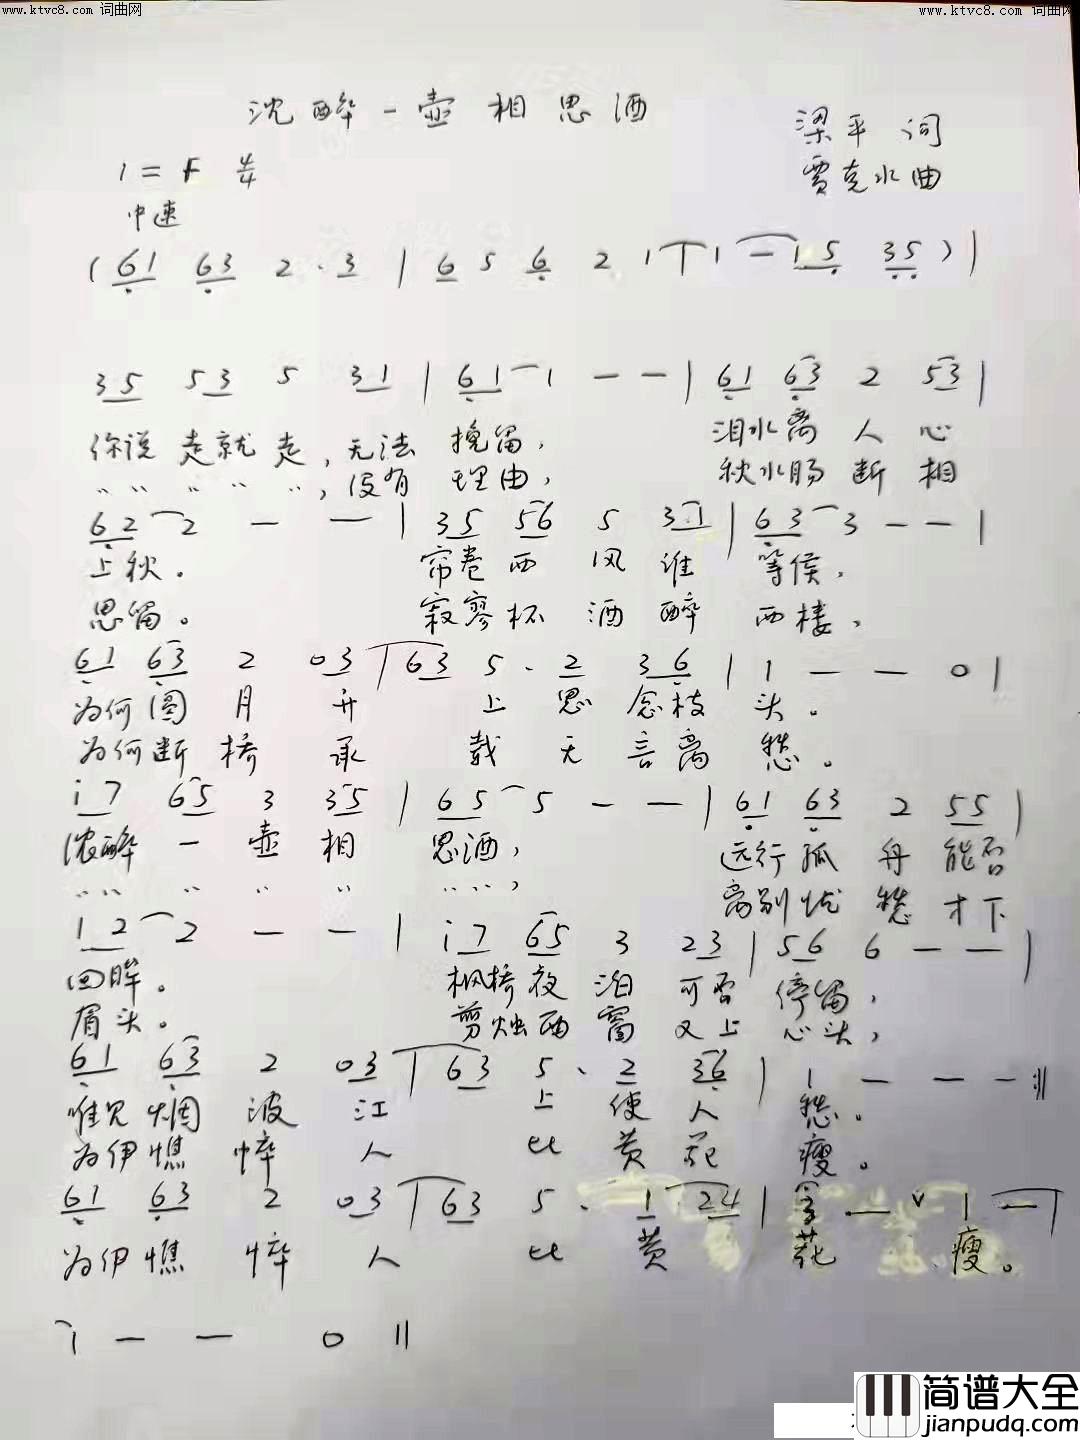 www.ktvc8.com 词曲网
www.ktvc8.com 词曲网
沈醉一壶相思酒
梁平 词
贾克水曲
1=F 4/4
中速
(61 63 2·3 | 6 5 6 2 1 | 1 — 15 35) |
35 53 5 31 | 61 1 — — | 61 63 2 53 |
你说走就走,无法 挽留, 泪水离人心
〃〃〃〃〃,没有 理由, 秋水肠断相
62 2 — — | 35 56 5 31 | 63 3 — — |
上秋。 帘卷西风谁 等侯,
思留。 寂寥杯酒醉 西楼,
61 63 2 03 | 63 5· 2 36 | 1 — — 0 |
为何圆月升 上思念枝头。
为何断桥承 载无言离愁。
i7 65 3 35 | 65 5 — — | 61 63 2 55 |
浓醉一壶相 思酒, 远行孤舟能否
〃〃〃〃〃 〃〃, 离别忧愁才下
12 2 — — | i7 65 3 23 | 56 6 — — |
回眸。 枫桥夜泊可否 停留,
眉头。 剪烛西窗又上 心头,
61 63 2 03 | 63 5· 2 36 | 1 — — — :||
唯见烟波江 上使人愁。
为伊憔悴人 比黄花瘦。
61 63 2 03 | 63 5· 1 24 | — ∨ 1 — |
为伊憔悴人 比黄花瘦。
1 — — 0 ||
简谱大全
jianpudq.com